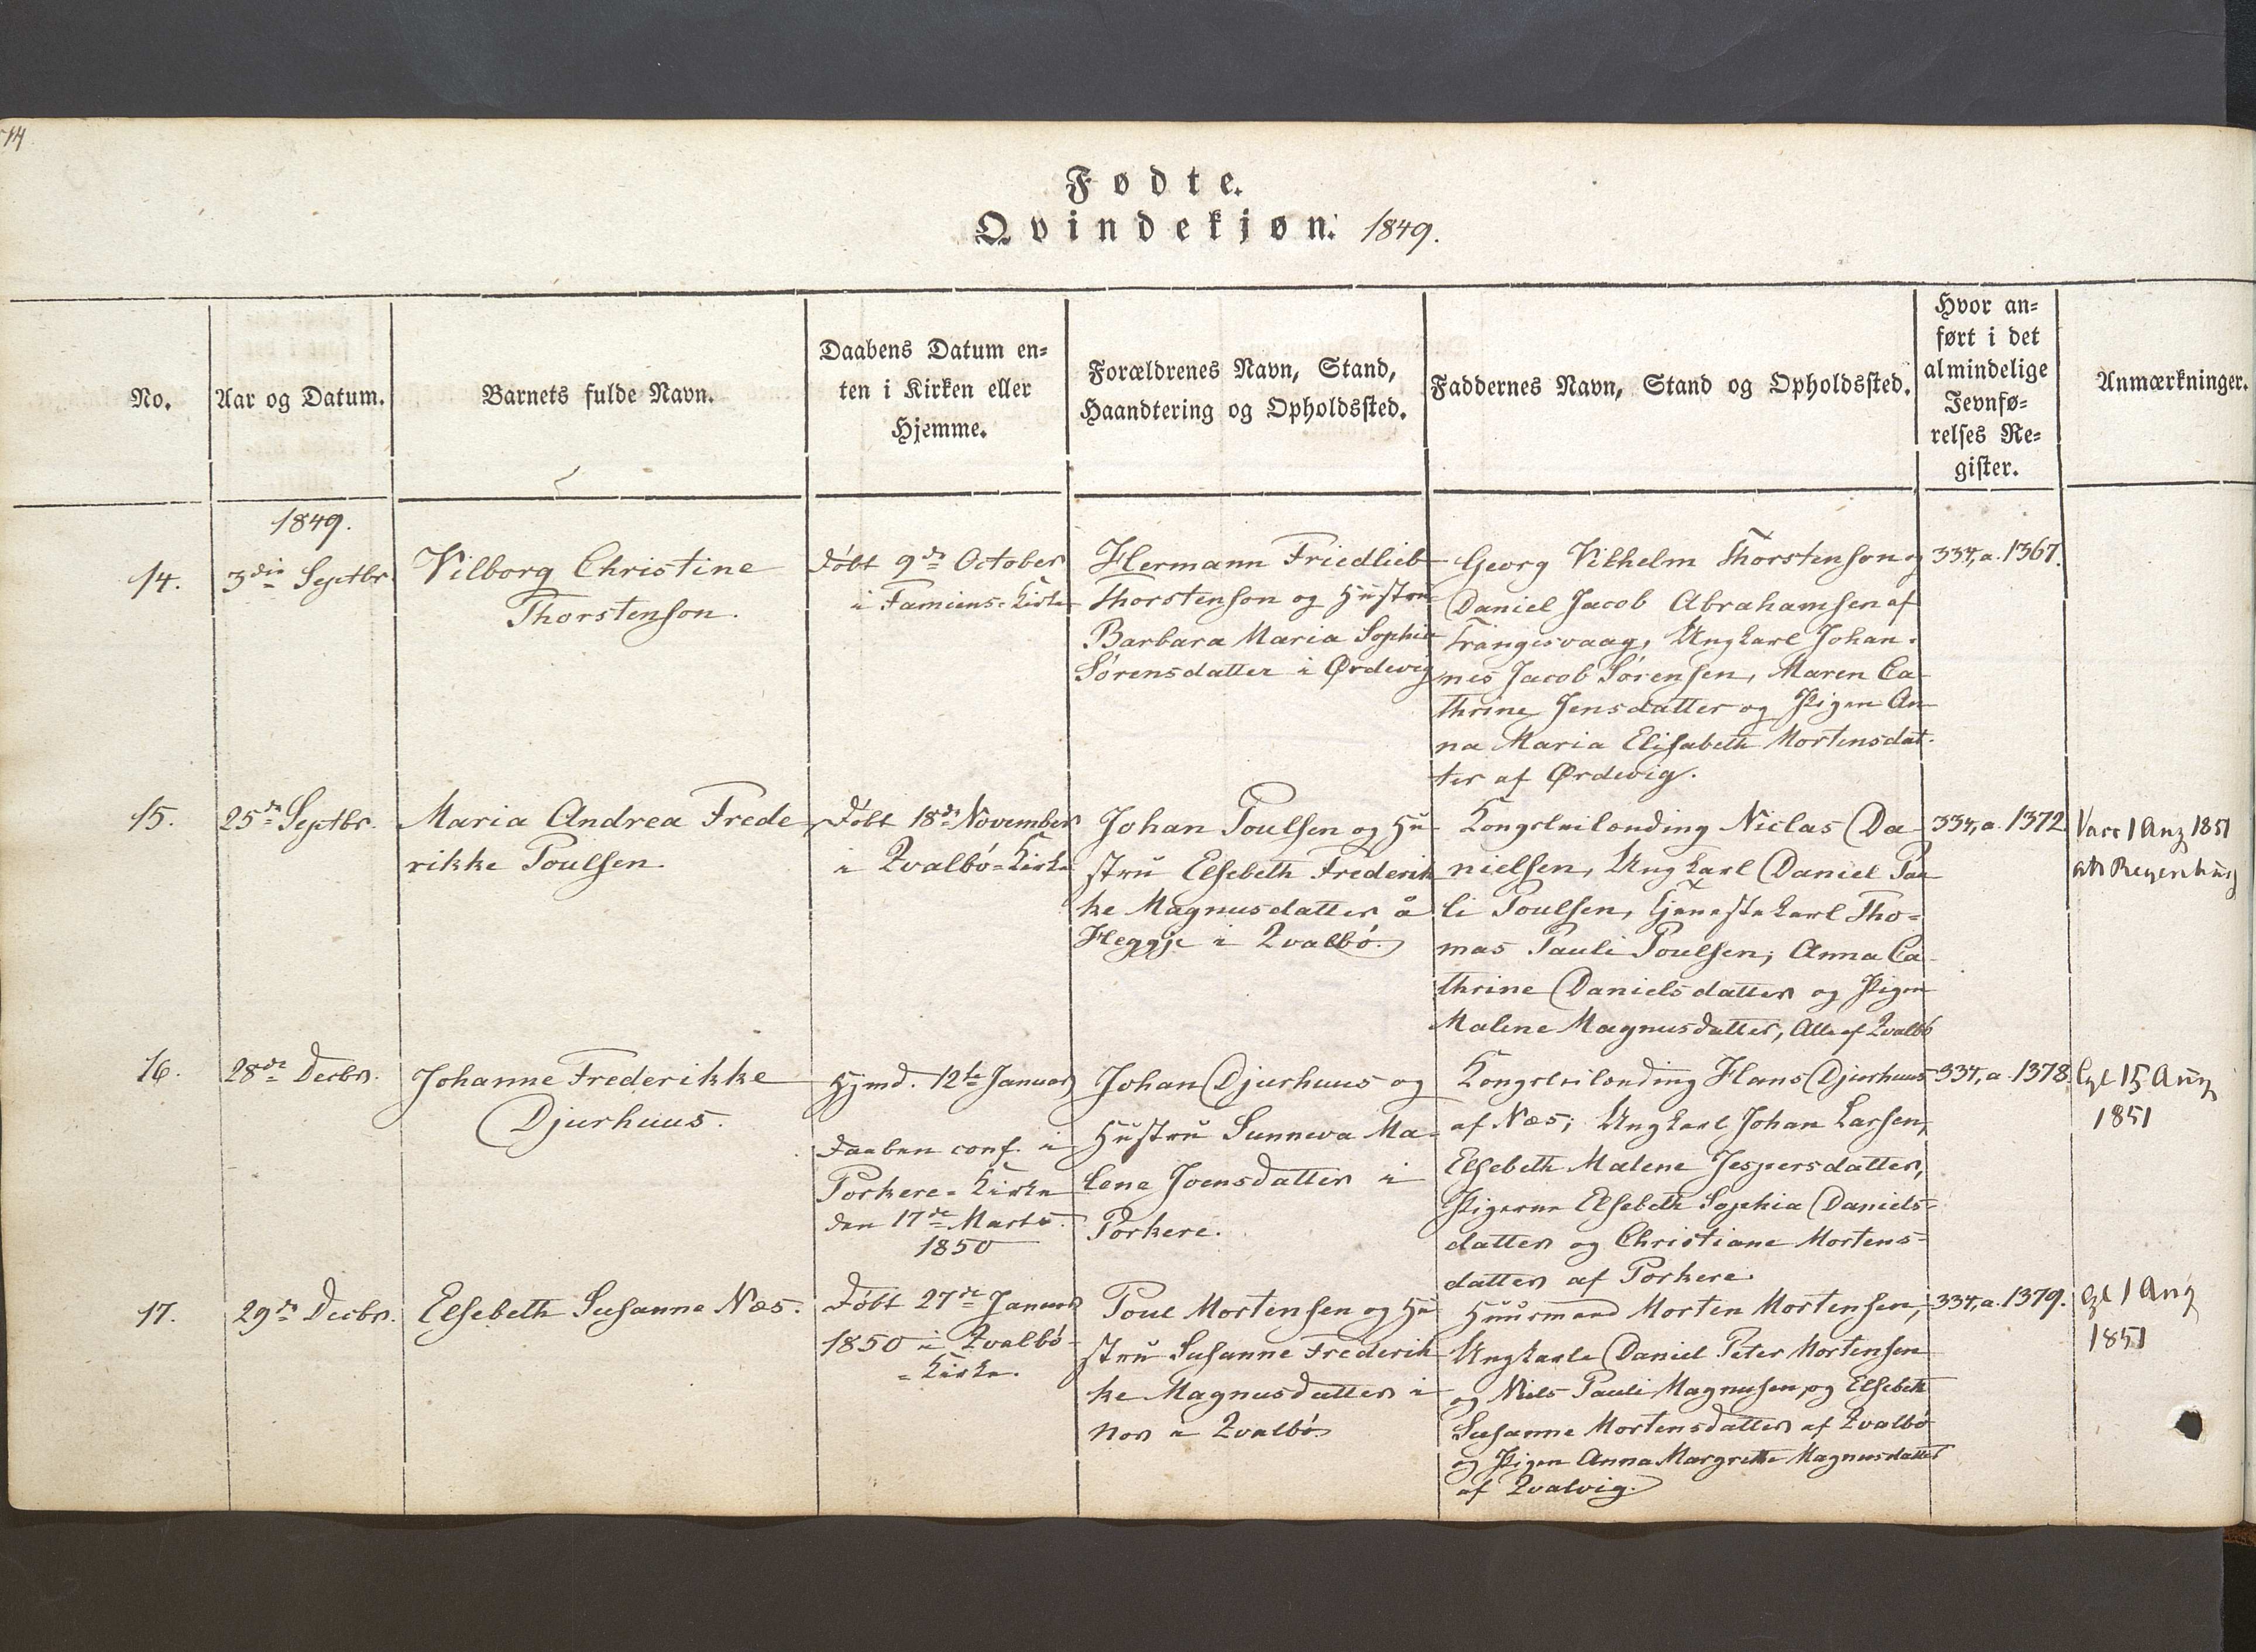 Fødte.
Qvindekjøn. 1849.
No.
Aar og Datum.
Barnets fulde Navn.
Daabens Datum en=
ten i Kirken eller
Hjemme.
Forældrenes Navn, Stand,
Haandtering og Opholdssted.
Faddernes Navn, Stand og Opholdssted.
Hvor an=
ført i det
almindelige
Jevnfø=
relses Re=
gister.
Anmærkninger.
1849.
14.
3die Septbr.
Vilborg Christine
Thorstenson.
Døbt 9de October
i Famiens-Kirke
Hermann Friedlieb
Thorstenson og Hustru
Barbara Maria Sophia
Sørensdatter i Ørdevig
Georg Vilhelm Thorstenson og
Daniel Jacob Abrahamsen af
Trangisvaag, Ungkarl Johan-
nes Jacob Sørensen, Maren Ca-
thrine Jensdatter og Pigen An-
na Maria Elisabeth Mortensdat-
ter af Ørdevig.
334, a. 1367.
15.
25de Septbr.
Maria Andrea Frede
rikke Poulsen.
Døbt 18de November
i Qvalbø=Kirke
Johan Poulsen og Hu-
stru Elsebeth Frederik
ke Magnusdatter å
Heggje i Qvalbø.
Niclas Da-
nielsen, Ungkarl Daniel Pau
li Poulsen, Tjenestekarl Tho=
mas Pauli Poulsen; Anna Ca-
thrine Danielsdatter og Pigen
Malene Magnusdatter, Alle af Qvalbø
334, a. 1372
Vacc 1 Aug 1851
16.
28de Decbr.
Johanne Frederikke
Djurhuus.
Hjmd. 12te Januar
Daaben conf. i
Porkere=Kirke
den 17de Marts
1850
Johan Djurhuus og
Hustru Sunneva Ma=
lene Joensdatter i
Porkere.
Hans Djurhuus
af Næs; Ungkarl Johan Larsen,
Elsebeth Malene Jespersdatter,
Pigerne Elsebeth Sophia Daniels=
datter og Christiane Mortens=
datter af Porkere.
334, a. 1378.
15 Aug
1851
17.
29de Decbr.
Elsebeth Susanne Næs.
Døbt 27de Januar
1850 i Qvalbø
=Kirke.
Poul Mortensen og Hu
stru Susanne Frederik
ke Magnusdatter i
Nor i Qvalbø.
Huusmand Morten Mortensen,
Ungkarle Daniel Peter Mortensen
og Niels Pauli Magnusen, og Elsebeth
Susanne Mortensdatter af Qvalbø
og Pigen Anna Margrethe Magnusdatter
af Qvalvig.
334, a. 1379.
1 Aug
1851